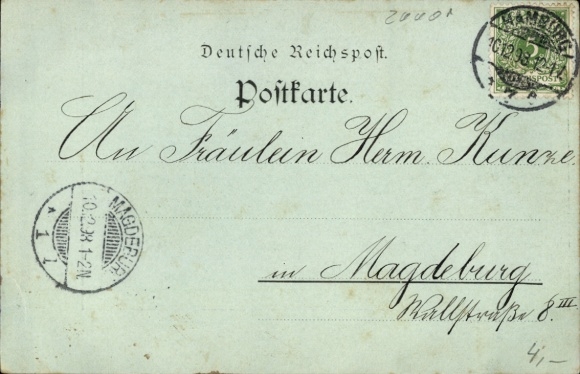 2000
HAMBURG
10.12.98.
5
Deutsche Reichspost.
Postkarte.
An Fräulein Herm. Kunze
MAGDEBURG
10.12.98 1-2N
* 1 *
in Magdeburg
Wallstraße 8 III
4,-